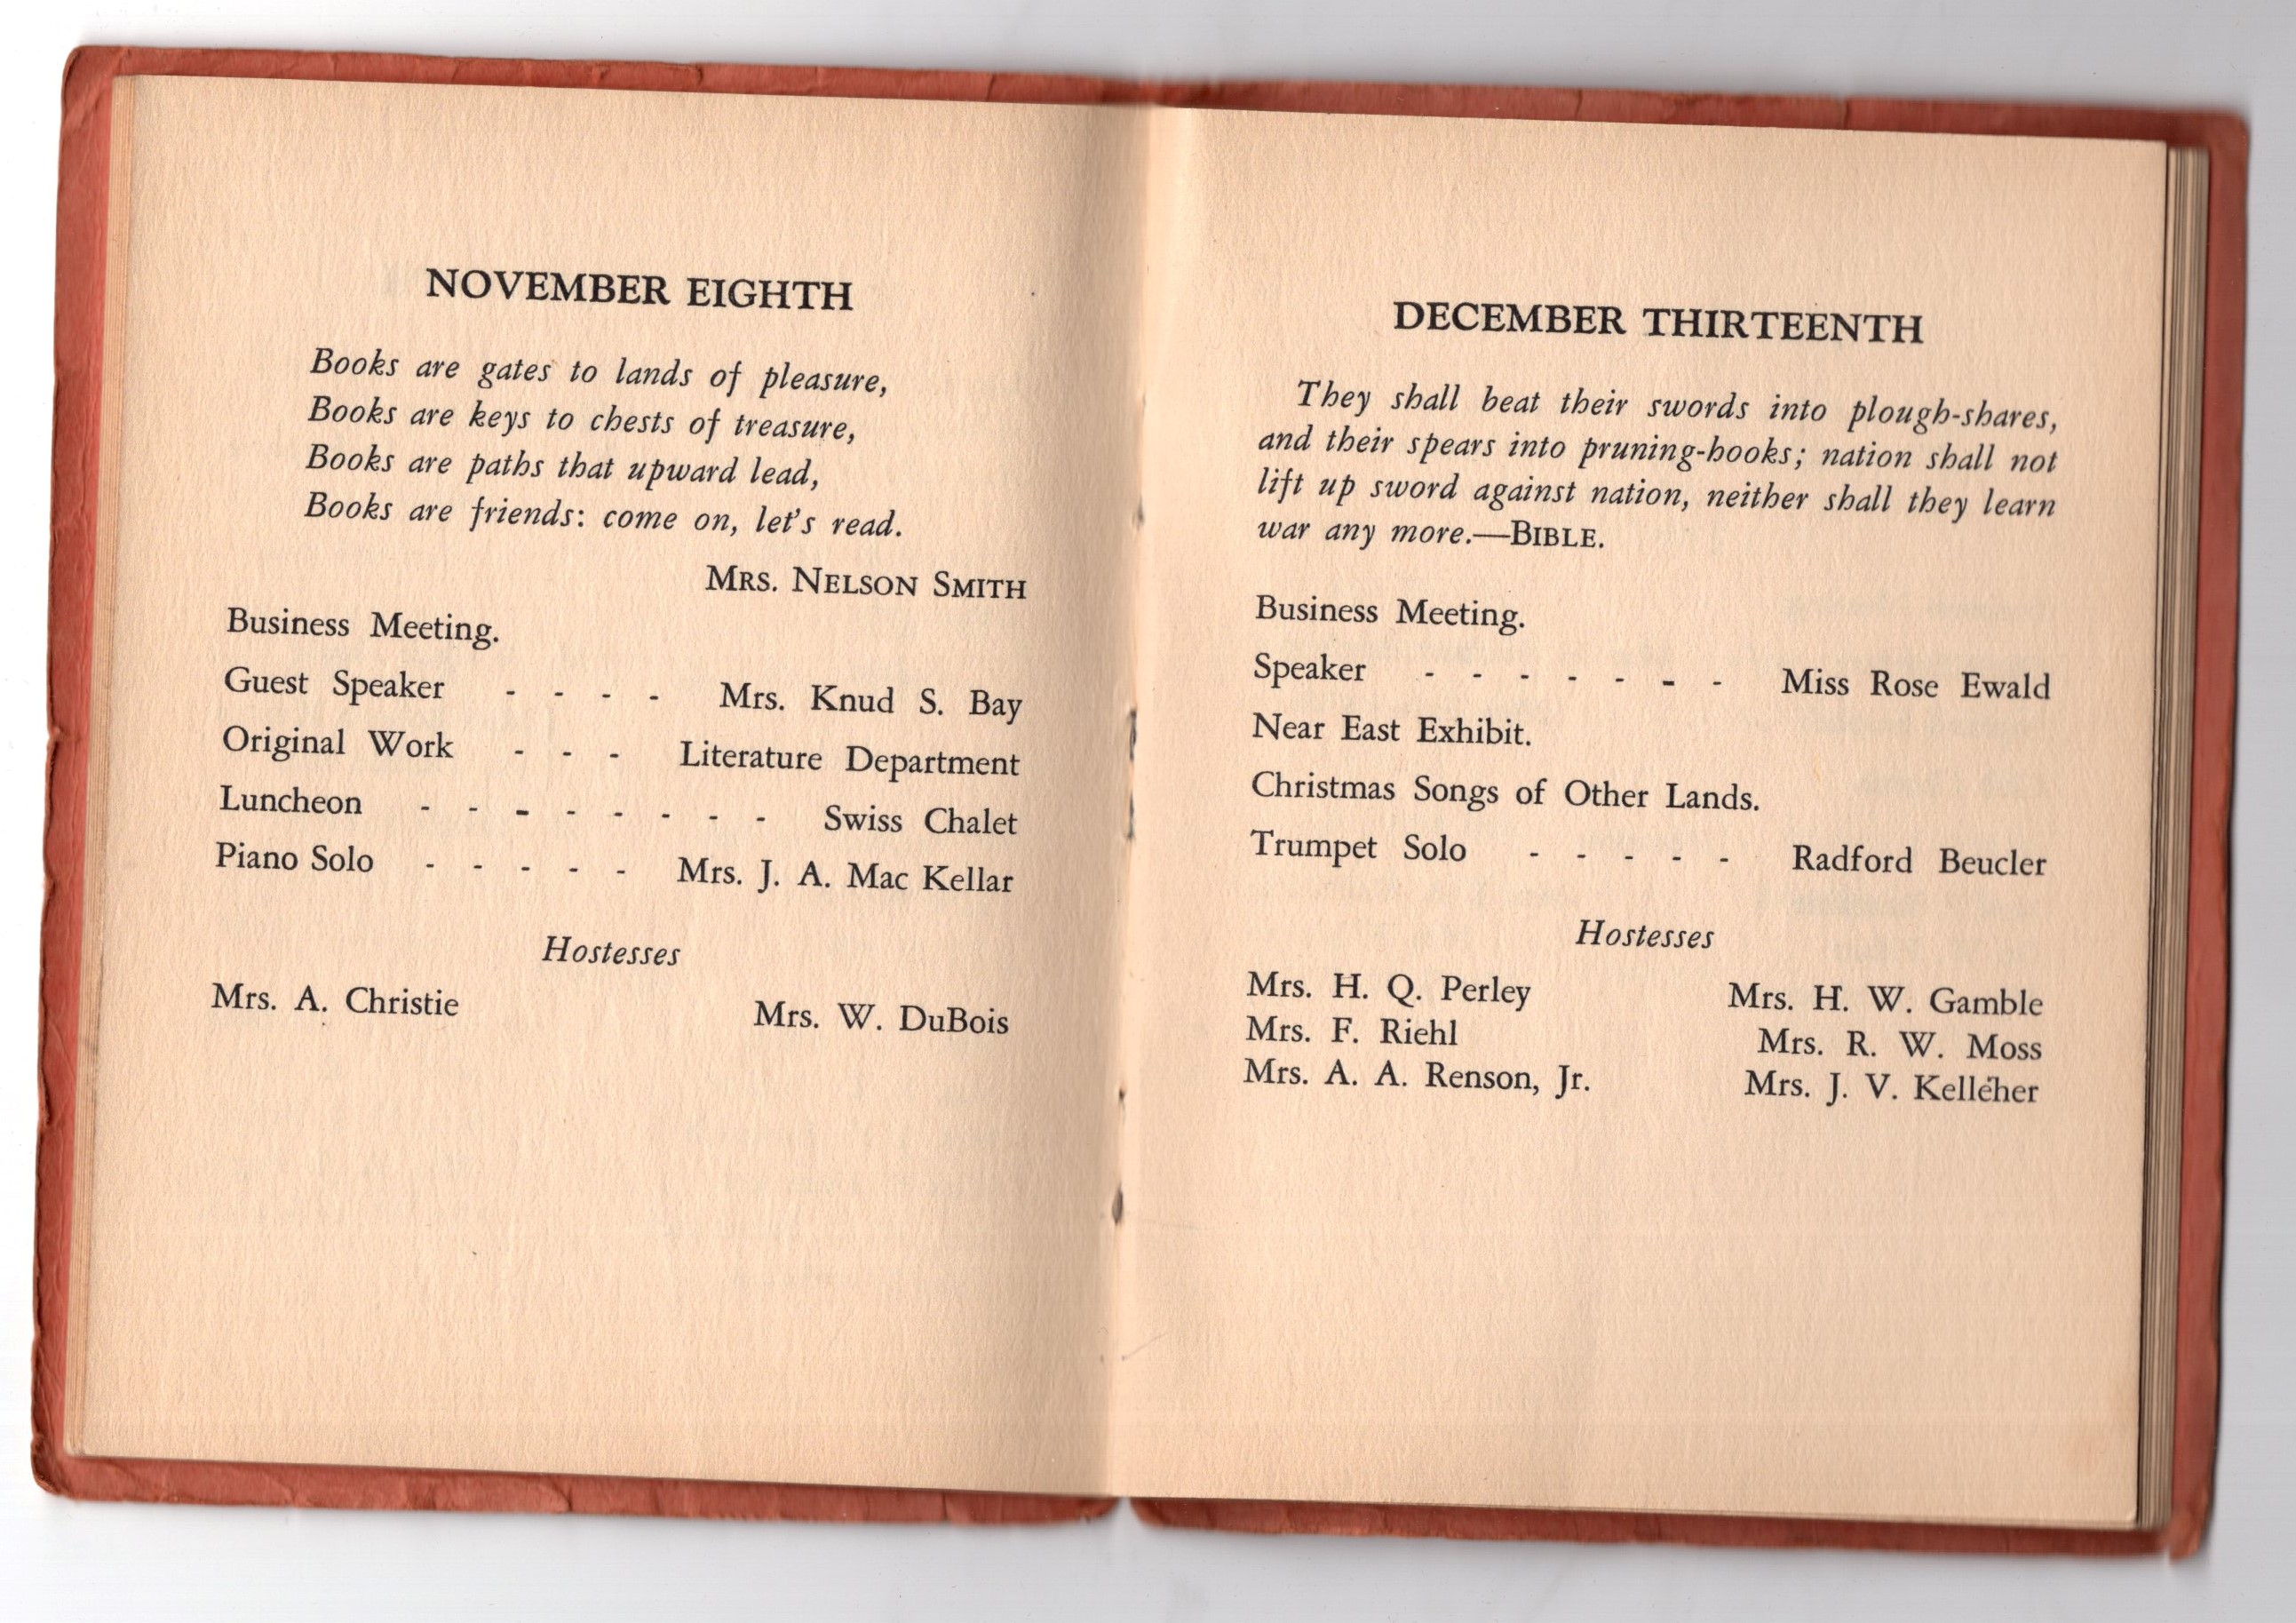 NOVEMBER EIGHTH
Books are gates to lands of pleasure,
Books are keys to chests of treasure,
Books are paths that upward lead,
Books are friends: come on, let's read.
MRS. NELSON SMITH
Business Meeting.
Guest Speaker - - - - Mrs. Knud S. Bay
Original Work - - - Literature Department
Luncheon - - - - - - - - Swiss Chalet
Piano Solo - - - - - Mrs. J. A. Mac Kellar
Hostesses
Mrs. A. Christie Mrs. W. DuBois
DECEMBER THIRTEENTH
They shall beat their swords into plough-shares,
and their spears into pruning-hooks; nation shall not
lift up sword against nation, neither shall they learn
war any more.—BIBLE.
Business Meeting.
Speaker - - - - - - - Miss Rose Ewald
Near East Exhibit.
Christmas Songs of Other Lands.
Trumpet Solo - - - - - Radford Beucler
Hostesses
Mrs. H. Q. Perley Mrs. H. W. Gamble
Mrs. F. Riehl Mrs. R. W. Moss
Mrs. A. A. Renson, Jr. Mrs. J. V. Kelleher